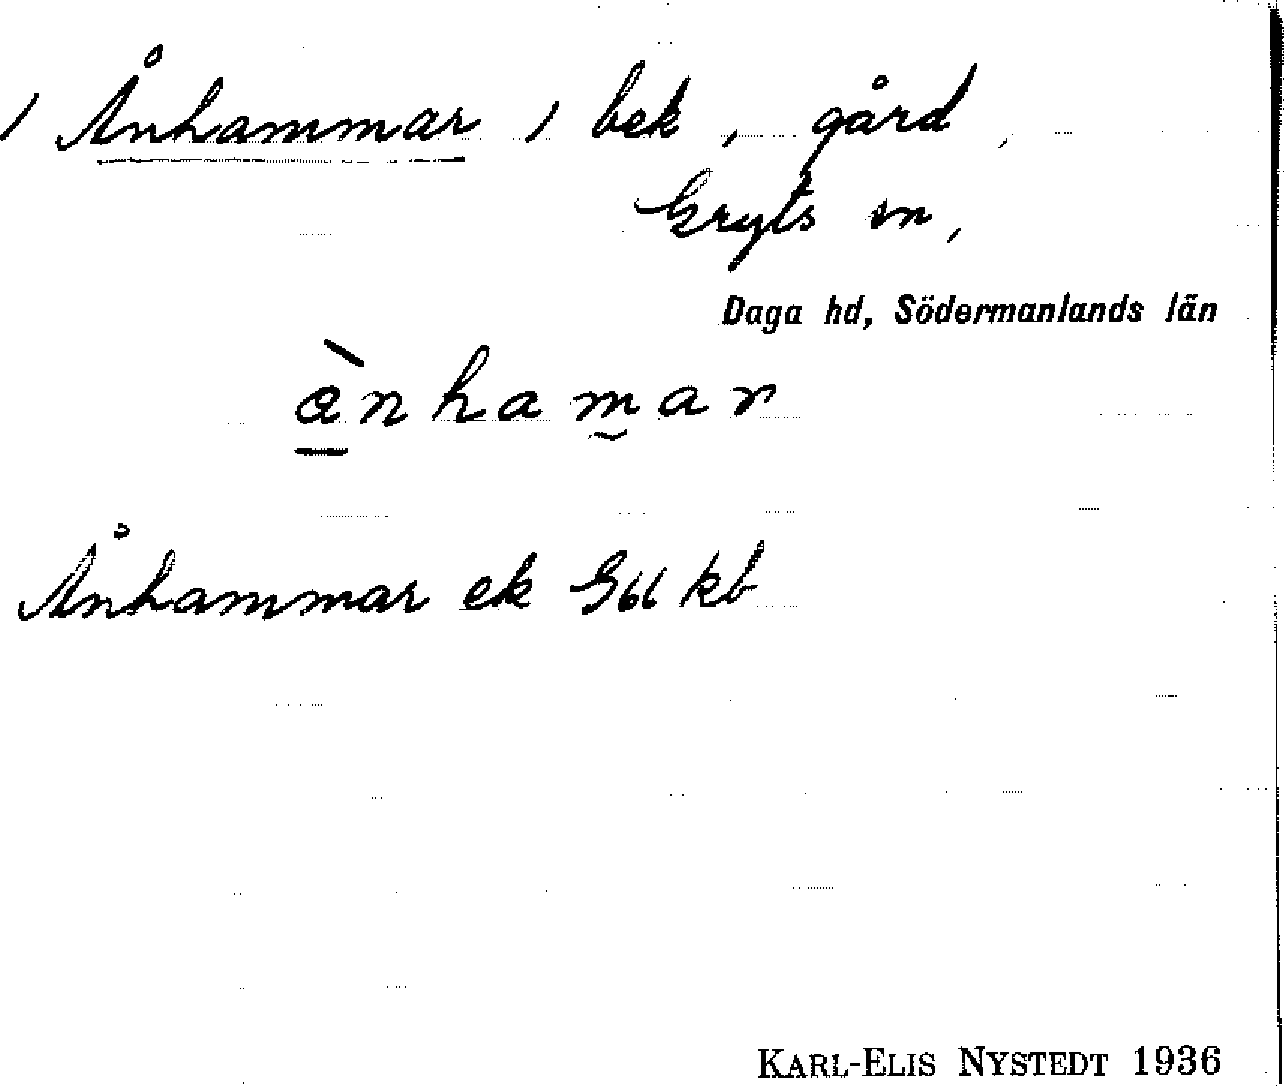 / Ånhammar / bek, gård,
Gryts sn,
Daga hd, Södermanlands län
ànhamar
Ånhammar ek Gbl kb
KARL-ELIS NYSTEDT 1936